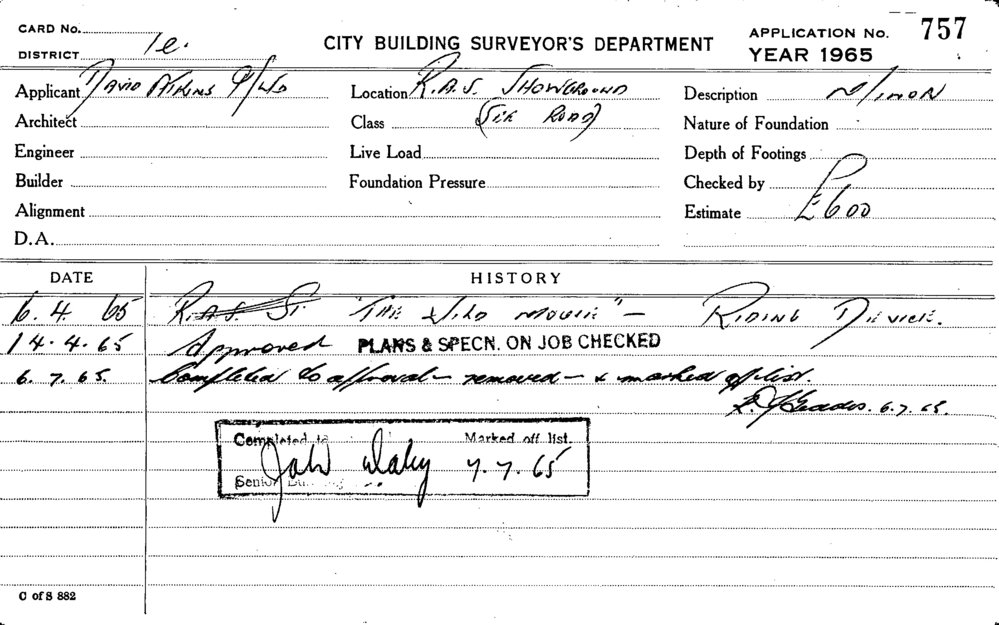 CARD No.
DISTRICT 1e.
CITY BUILDING SURVEYOR'S DEPARTMENT
APPLICATION No. 757
YEAR 1965
Applicant David Atkins P/Ltd Location R.A.S. Showground Description Minor
Architect Class Nature of Foundation
Engineer Live Load Depth of Footings
Builder Foundation Pressure Checked by
Alignment Estimate £600
D.A.
DATE HISTORY
6. 4. 65 R.A.S. St. "The Wild Mouse" - Riding Device.
14. 4. 65 Approved PLANS & SPECN. ON JOB CHECKED
6. 7. 65. Completed to approval - removed - & marked off list.
6.7.65.
Completed to Marked off list.
7. 7. 65
Senior
C of S 882